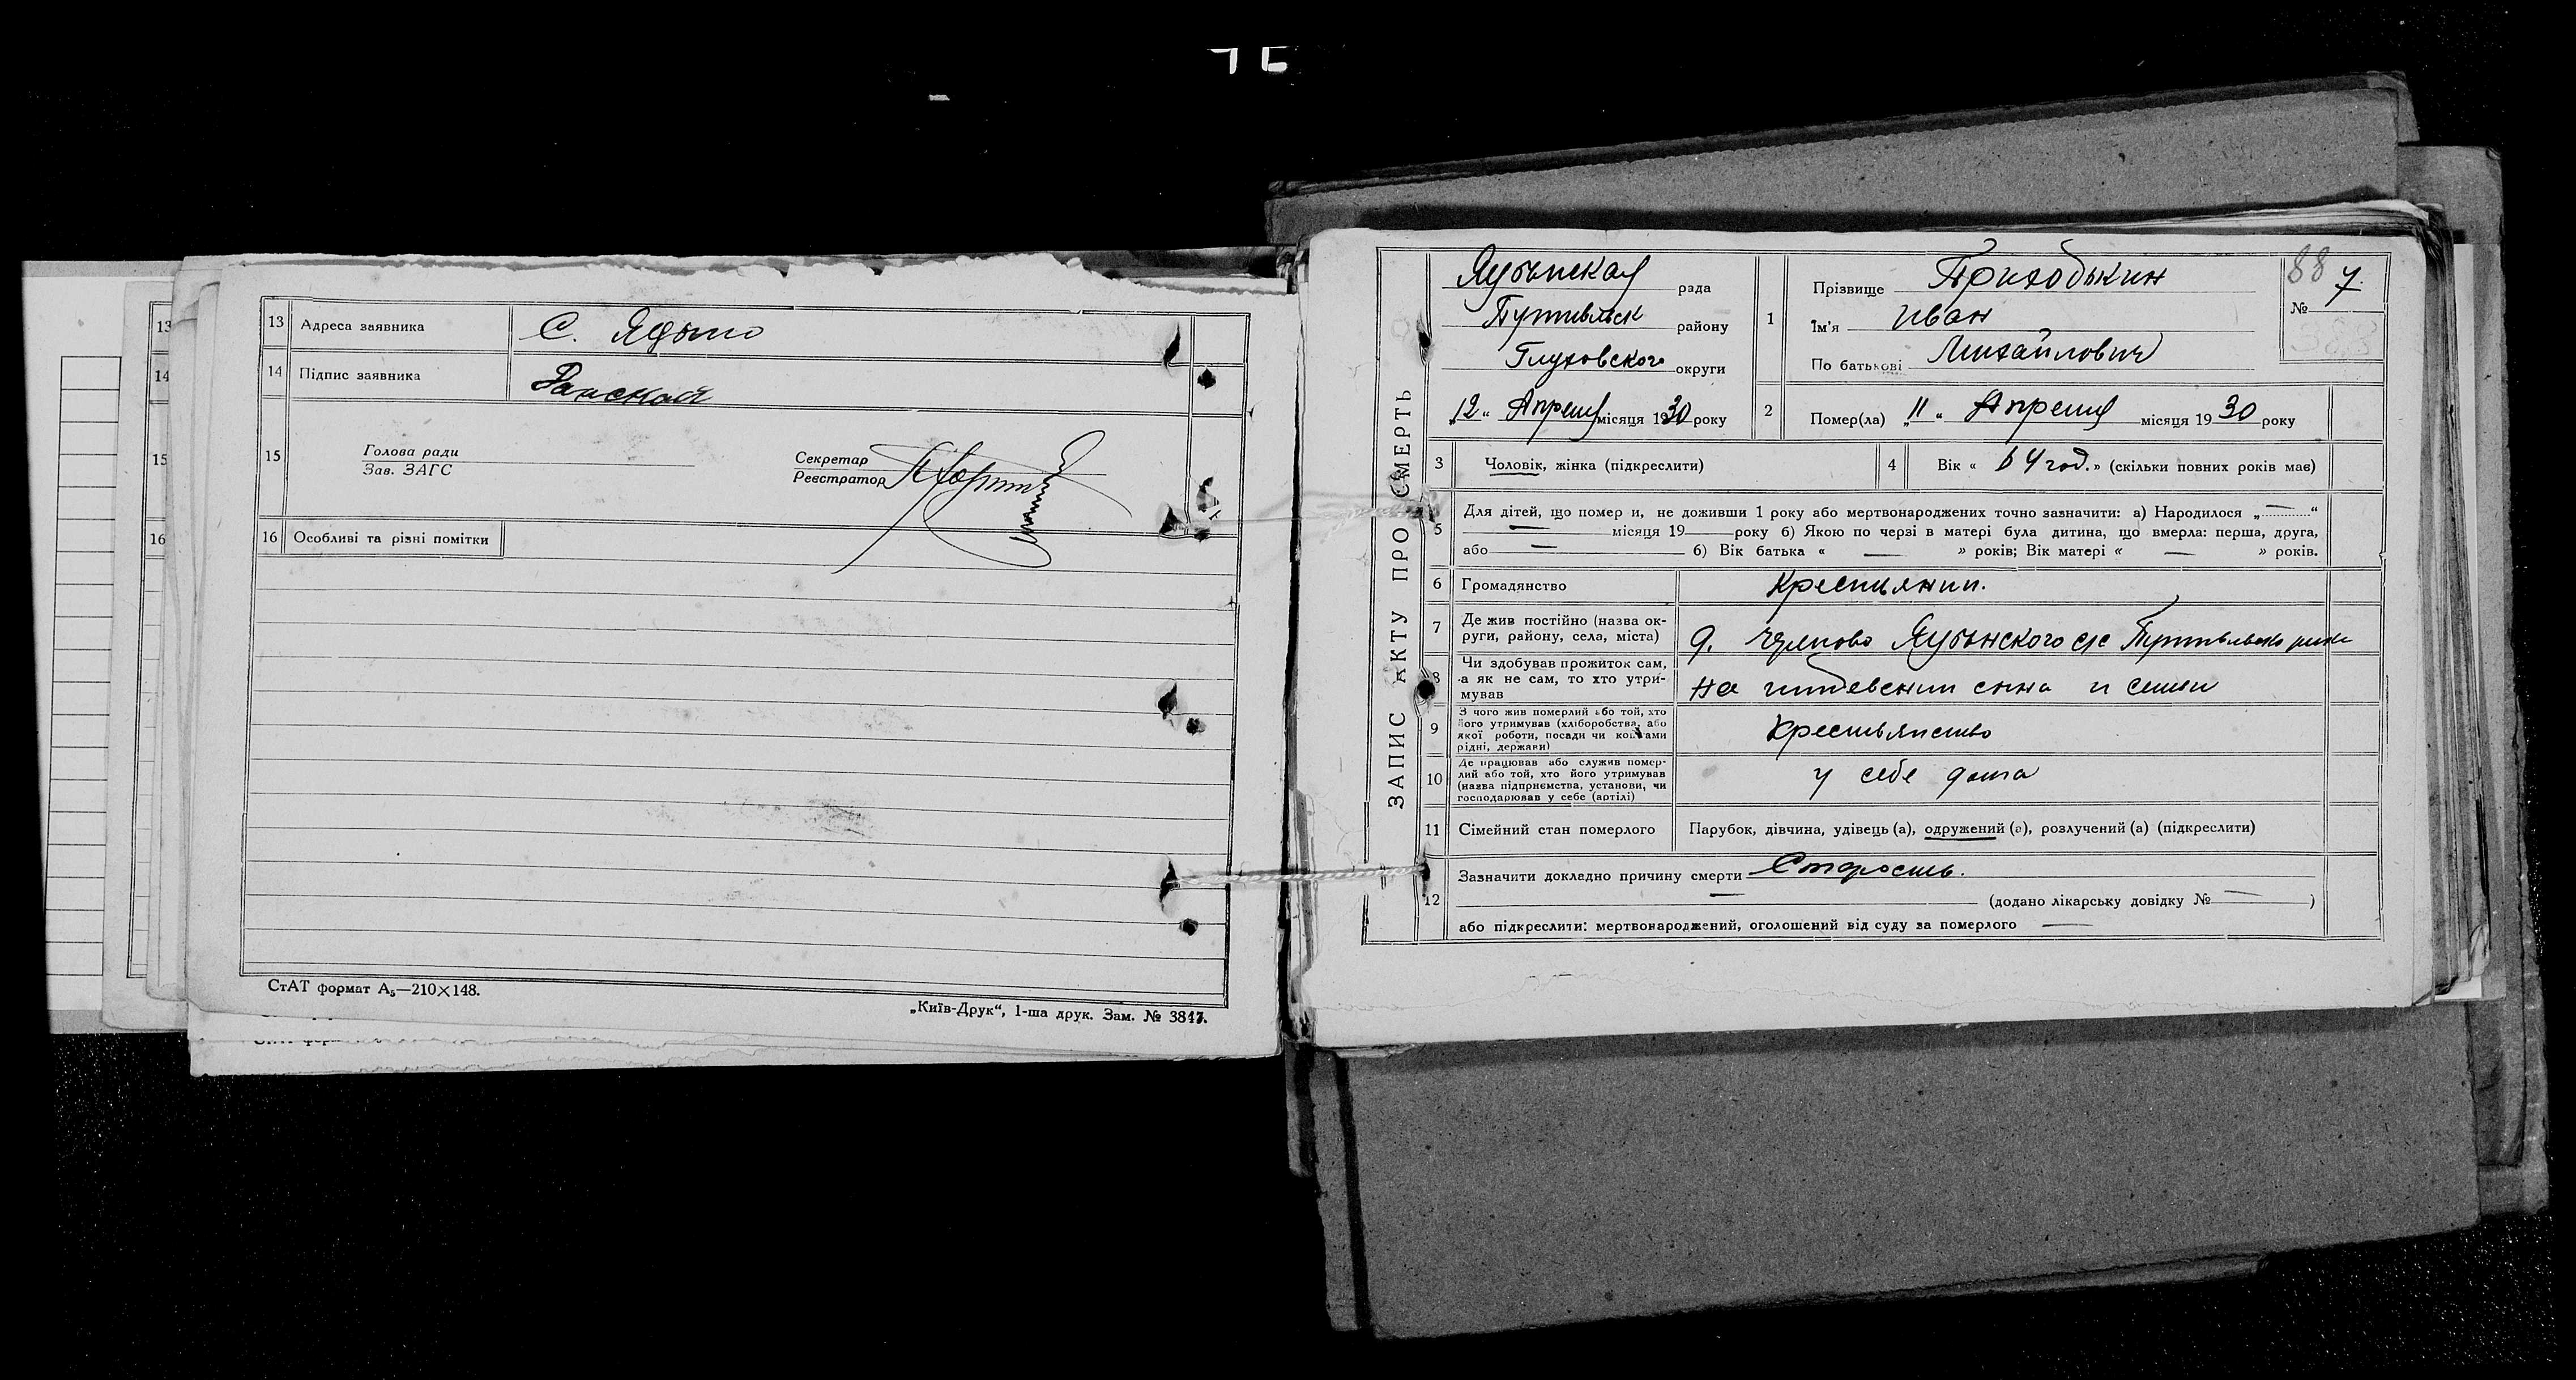 13 Адреса заявника С.
14 Підпис заявника
15 Голова ради
Зав. ЗАГС
Секретар
Реєстратор
16 Особливі та різні помітки
СтАТ формат А₅—210×148.
„Київ-Друк“, 1-ша друк. Зам. № 3847.
13
14
15
16
ЗАПИС АКТУ ПРО СМЕРТЬ
рада
Путивльск району
Глуховского округи
„12“ Апреля місяця 1930 року
1 Прізвище
Ім'я Иван
По батькові Михайлович
88
№ 7.
2 Помер(ла) „11“ Апреля місяця 1930 року
3 Чоловік, жінка (підкреслити)
4 Вік « 64 год. » (скільки повних років має)
5 Для дітей, що померли, не доживши 1 року або мертвонароджених точно зазначити: а) Народилося „—“
— місяця 19— року б) Якою по черзі в матері була дитина, що вмерла: перша, друга,
або — б) Вік батька « — » років; Вік матері « — » років.
6 Громадянство Крестьянин.
7 Де жив постійно (назва округи, району, села, міста) д. с/с
8 Чи здобував прожиток сам,
а як не сам, то хто утри-
мував
на иждевении сына и семьи
9 З чого жив померлий або той, хто
його утримував (хліборобства, або
якої роботи, посади чи коштами
рідні, держави)
Крестьянство
10 Де працював або служив помер-
лий або той, хто його утримував
(назва підприємства, установи, чи
господарював у себе (артілі)
у себе дома
11 Сімейний стан померлого Парубок, дівчина, удівець (а), одружений (а), розлучений (а) (підкреслити)
12 Зазначити докладно причину смерти Старость.
— (додано лікарську довідку № — )
або підкреслити: мертвонароджений, оголошений від суду за померлого —